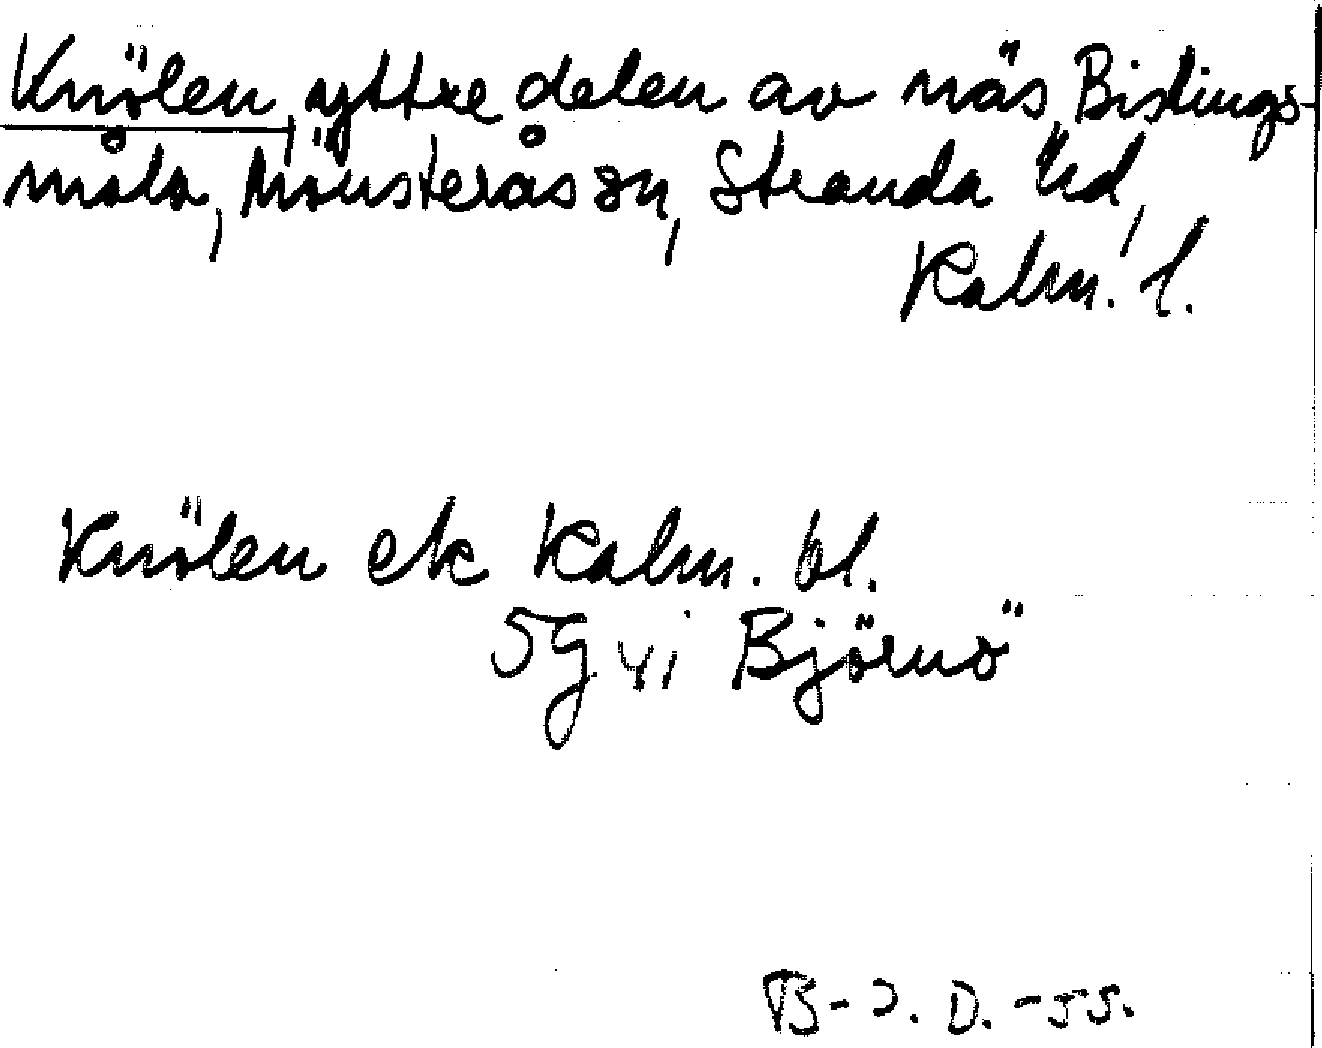 Knölen, yttre delen av näs, Bistings-
måla, Mönsterås sn, Stranda hd,
Kalm. l.
Knölen ek Kalm. bl.
5g vi Björnö
B-J. D. -55.